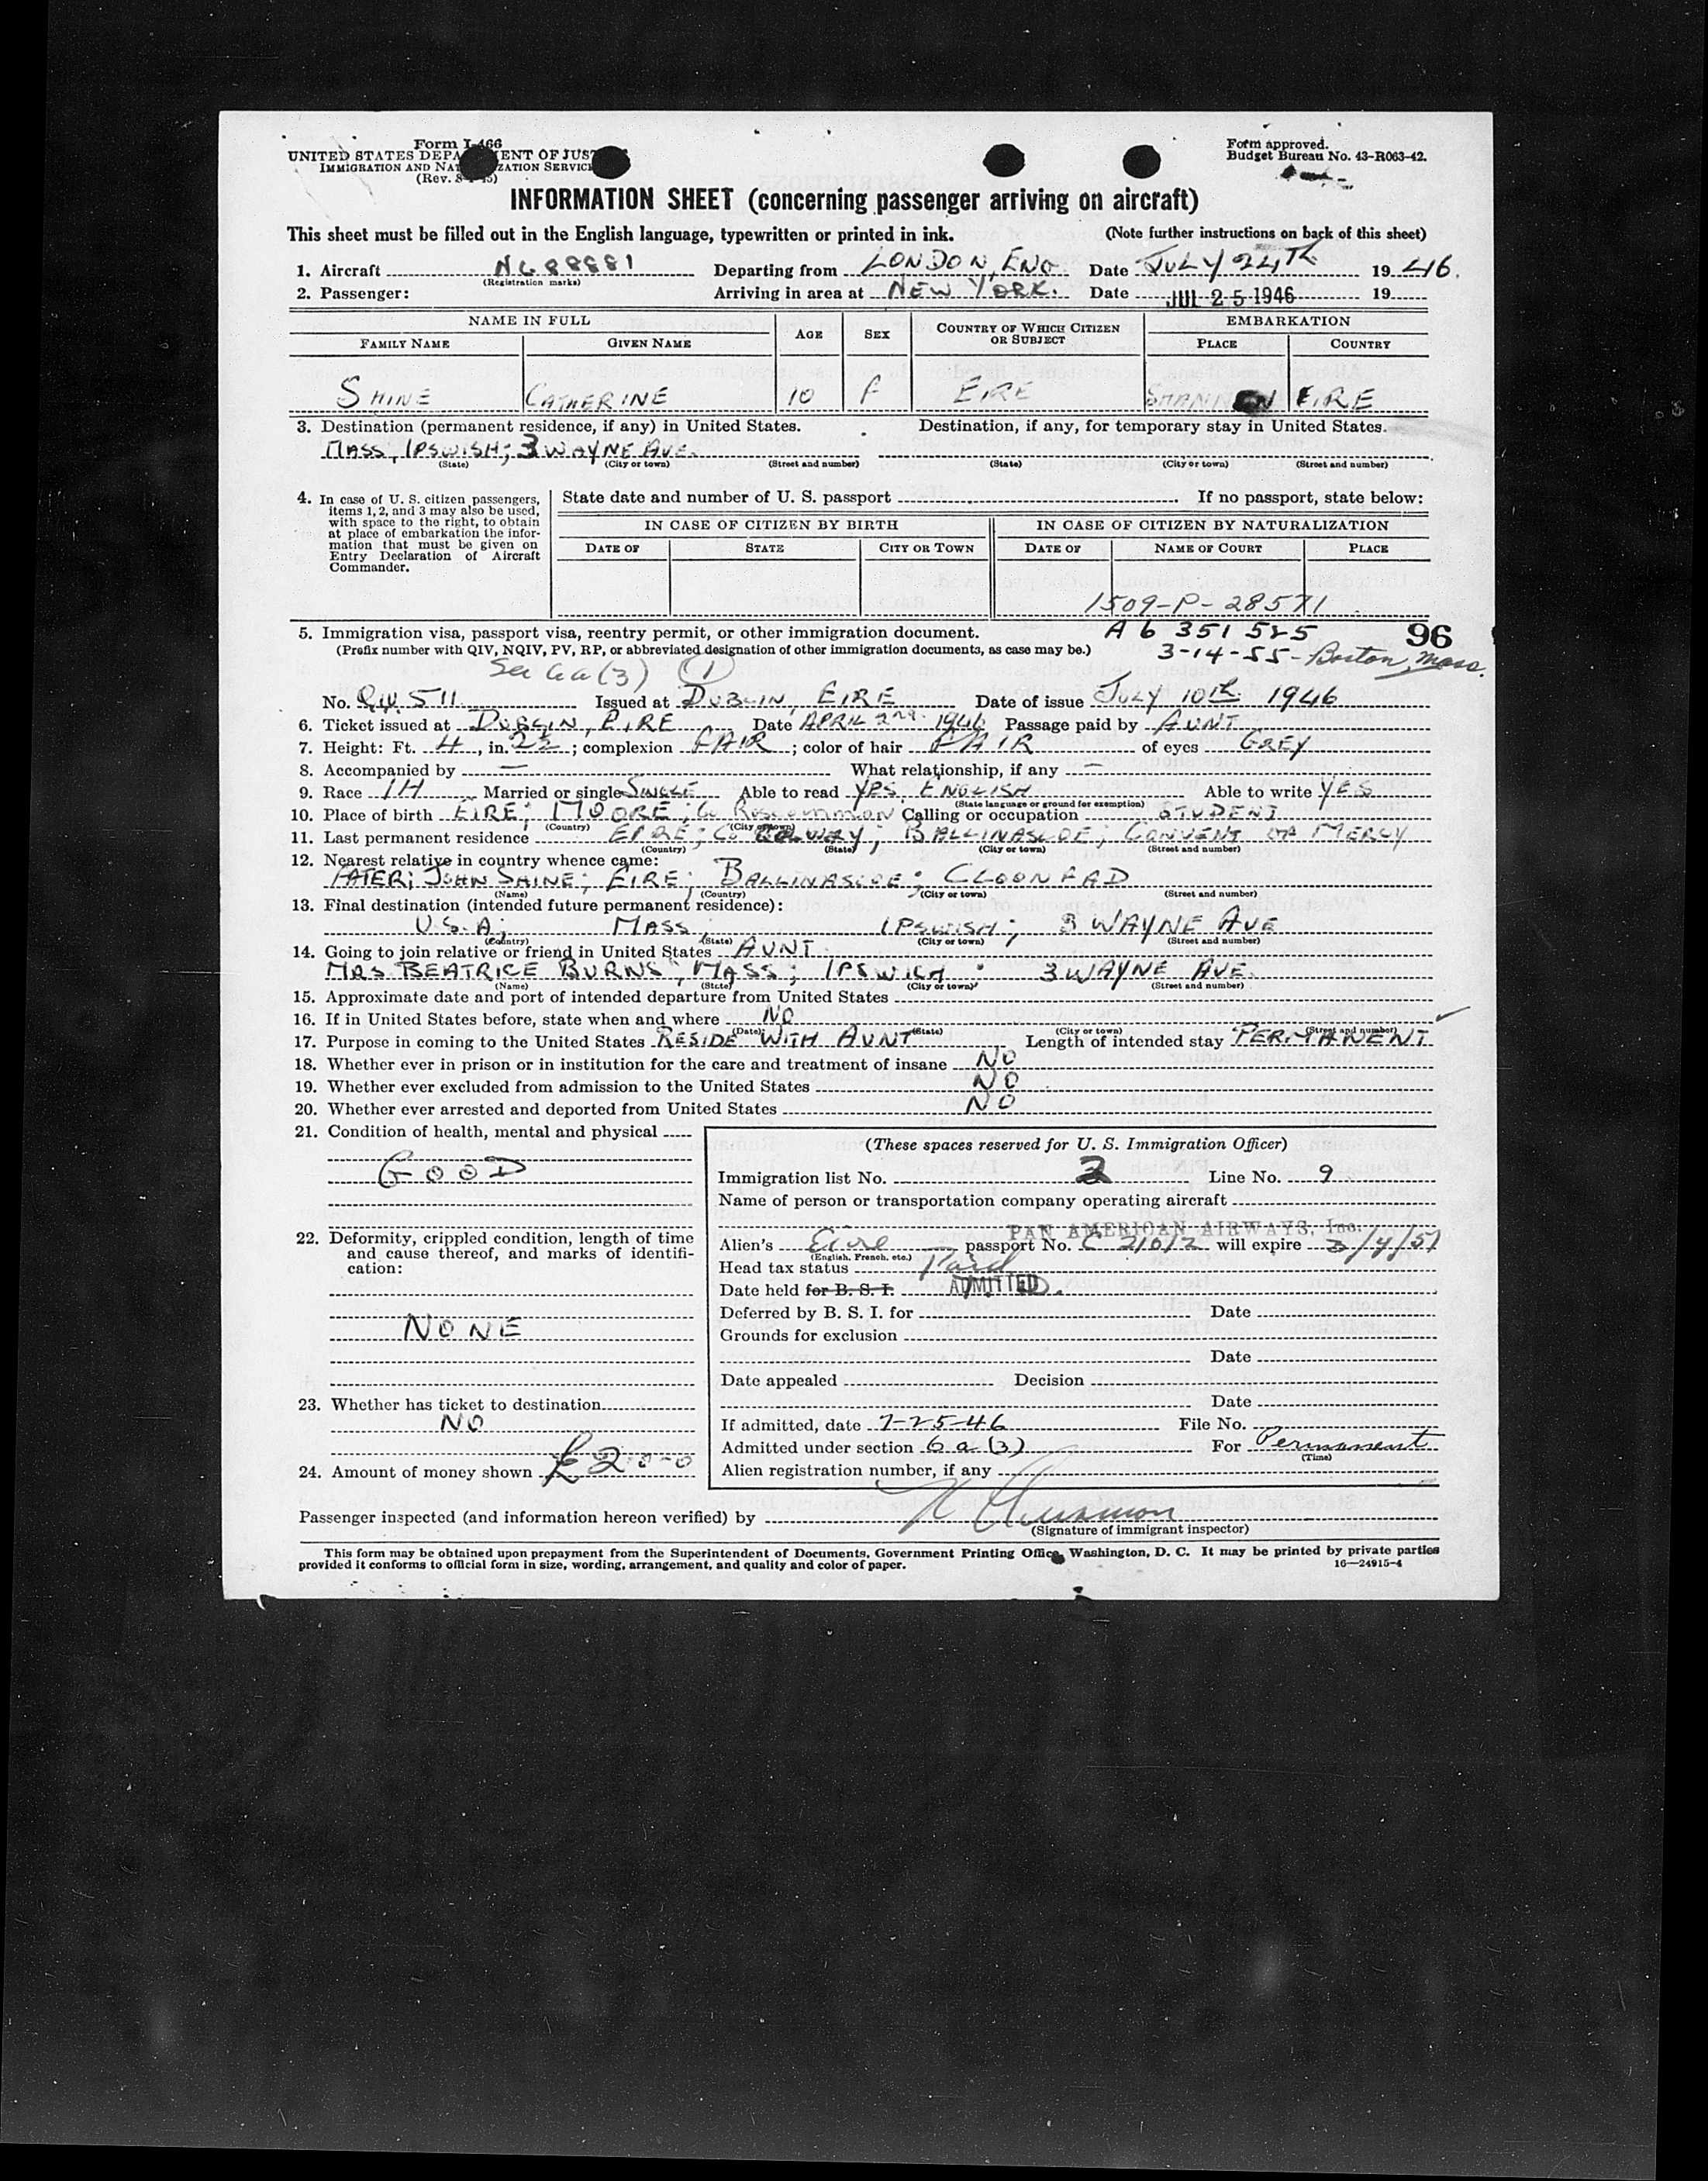 Form I-466
UNITED STATES DEPA ENT OF JUS
IMMIGRATION AND NAT ZATION SERVIC
(Rev. 8- -45)
Form approved.
Budget Bureau No. 43-R063-42.
INFORMATION SHEET (concerning passenger arriving on aircraft)
This sheet must be filled out in the English language, typewritten or printed in ink. (Note further instructions on back of this sheet)
1. Aircraft NC88881 Departing from LONDON, ENG. Date JULY 24TH 1946.
(Registration marks)
2. Passenger: Arriving in area at NEW YORK. Date JUL 25 1946 19
NAME IN FULL AGE SEX COUNTRY OF WHICH CITIZEN OR SUBJECT EMBARKATION
FAMILY NAME GIVEN NAME PLACE COUNTRY
SHINE CATHERINE 10 F EIRE SHANNON EIRE
3. Destination (permanent residence, if any) in United States. Destination, if any, for temporary stay in United States.
MASS, IPSWISH; 3 WAYNE AVE.
(State) (City or town) (Street and number) (State) (City or town) (Street and number)
4. In case of U. S. citizen passengers, items 1, 2, and 3 may also be used, with space to the right, to obtain at place of embarkation the information that must be given on Entry Declaration of Aircraft Commander.
State date and number of U. S. passport If no passport, state below:
IN CASE OF CITIZEN BY BIRTH IN CASE OF CITIZEN BY NATURALIZATION
DATE OF STATE CITY OR TOWN DATE OF NAME OF COURT PLACE
1509-P-28571
5. Immigration visa, passport visa, reentry permit, or other immigration document. A 6 351 525 96
(Prefix number with QIV, NQIV, PV, RP, or abbreviated designation of other immigration documents, as case may be.) 3-14-55-Boston, Mass.
Sec 6a(3) (1)
No. QIV 511 Issued at DUBLIN, EIRE Date of issue JULY 10th 1946
6. Ticket issued at DUBLIN, EIRE Date APRIL 1946 Passage paid by AUNT
7. Height: Ft. 4, in. 2½; complexion FAIR; color of hair FAIR of eyes GREY
8. Accompanied by — What relationship, if any —
9. Race IH Married or single SINGLE Able to read YES ENGLISH Able to write YES
(State language or ground for exemption)
10. Place of birth EIRE; MOORE; Co Roscommon Calling or occupation STUDENT
(Country) (City or town)
11. Last permanent residence EIRE; Co GALWAY; BALLINASLOE; CONVENT OF MERCY
(Country) (State) (City or town) (Street and number)
12. Nearest relative in country whence came:
FATER; JOHN SHINE; EIRE; BALLINASLOE; CLOONFAD
(Name) (Country) (City or town) (Street and number)
13. Final destination (intended future permanent residence):
U.S.A; MASS; IPSWISH; 3 WAYNE AVE
(Country) (State) (City or town) (Street and number)
14. Going to join relative or friend in United States AUNT
MRS BEATRICE BURNS; MASS; IPSWICH; 3 WAYNE AVE.
(Name) (State) (City or town) (Street and number)
15. Approximate date and port of intended departure from United States
16. If in United States before, state when and where NO
(Date) (State) (City or town) (Street and number)
17. Purpose in coming to the United States RESIDE WITH AUNT Length of intended stay PERMANENT
18. Whether ever in prison or in institution for the care and treatment of insane NO
19. Whether ever excluded from admission to the United States NO
20. Whether ever arrested and deported from United States NO
21. Condition of health, mental and physical
GOOD
22. Deformity, crippled condition, length of time and cause thereof, and marks of identification:
NONE
23. Whether has ticket to destination
NO
24. Amount of money shown £2-0-0
(These spaces reserved for U. S. Immigration Officer)
Immigration list No. 2 Line No. 9
Name of person or transportation company operating aircraft
PAN AMERICAN AIRWAYS, Inc.
Alien's Eire passport No. C 21012 will expire 3/4/51
(English, French, etc.)
Head tax status Paid
Date held for B. S. I. ADMITTED.
Deferred by B. S. I. for Date
Grounds for exclusion
Date
Date appealed Decision
Date
If admitted, date 7-25-46 File No.
Admitted under section 6 a (3) For Permanent
(Time)
Alien registration number, if any
Passenger inspected (and information hereon verified) by
(Signature of immigrant inspector)
This form may be obtained upon prepayment from the Superintendent of Documents, Government Printing Office, Washington, D. C. It may be printed by private parties
provided it conforms to official form in size, wording, arrangement, and quality and color of paper. 16—24915-4